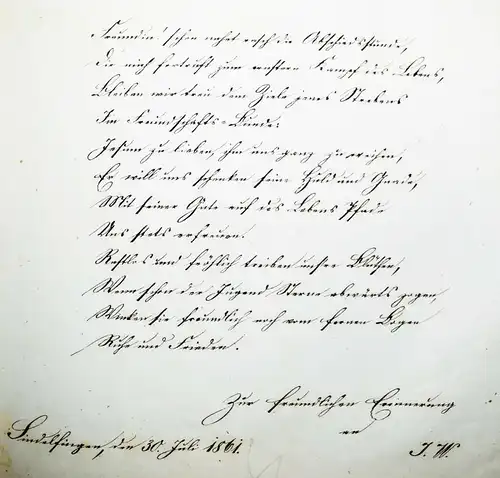 Freundin! schon nahet rasch die Abschiedsstunde,
Die mich fortruft zum ernstern Kampf des Lebens,
Bleiben wir treu dem Ziele jenes Strebens
Im Freundschafts-Bunde:
Jesum zu lieben, ihm uns ganz zu weihen,
Er will uns schenken seine Huld und Gnade,
Mit seiner Güte auf des Lebens Pfade
Uns stets erfreuen.
Rastlos und fröhlich treiben unsre Blüthen,
Wenn schon der Jugend Sterne abwärts zogen,
Winken sie freundlich noch vom fernen Bogen
Ruhe und Frieden.
Zur freundlichen Erinnerung
an
Sindelfingen, den 30. Juli 1861. J. W.